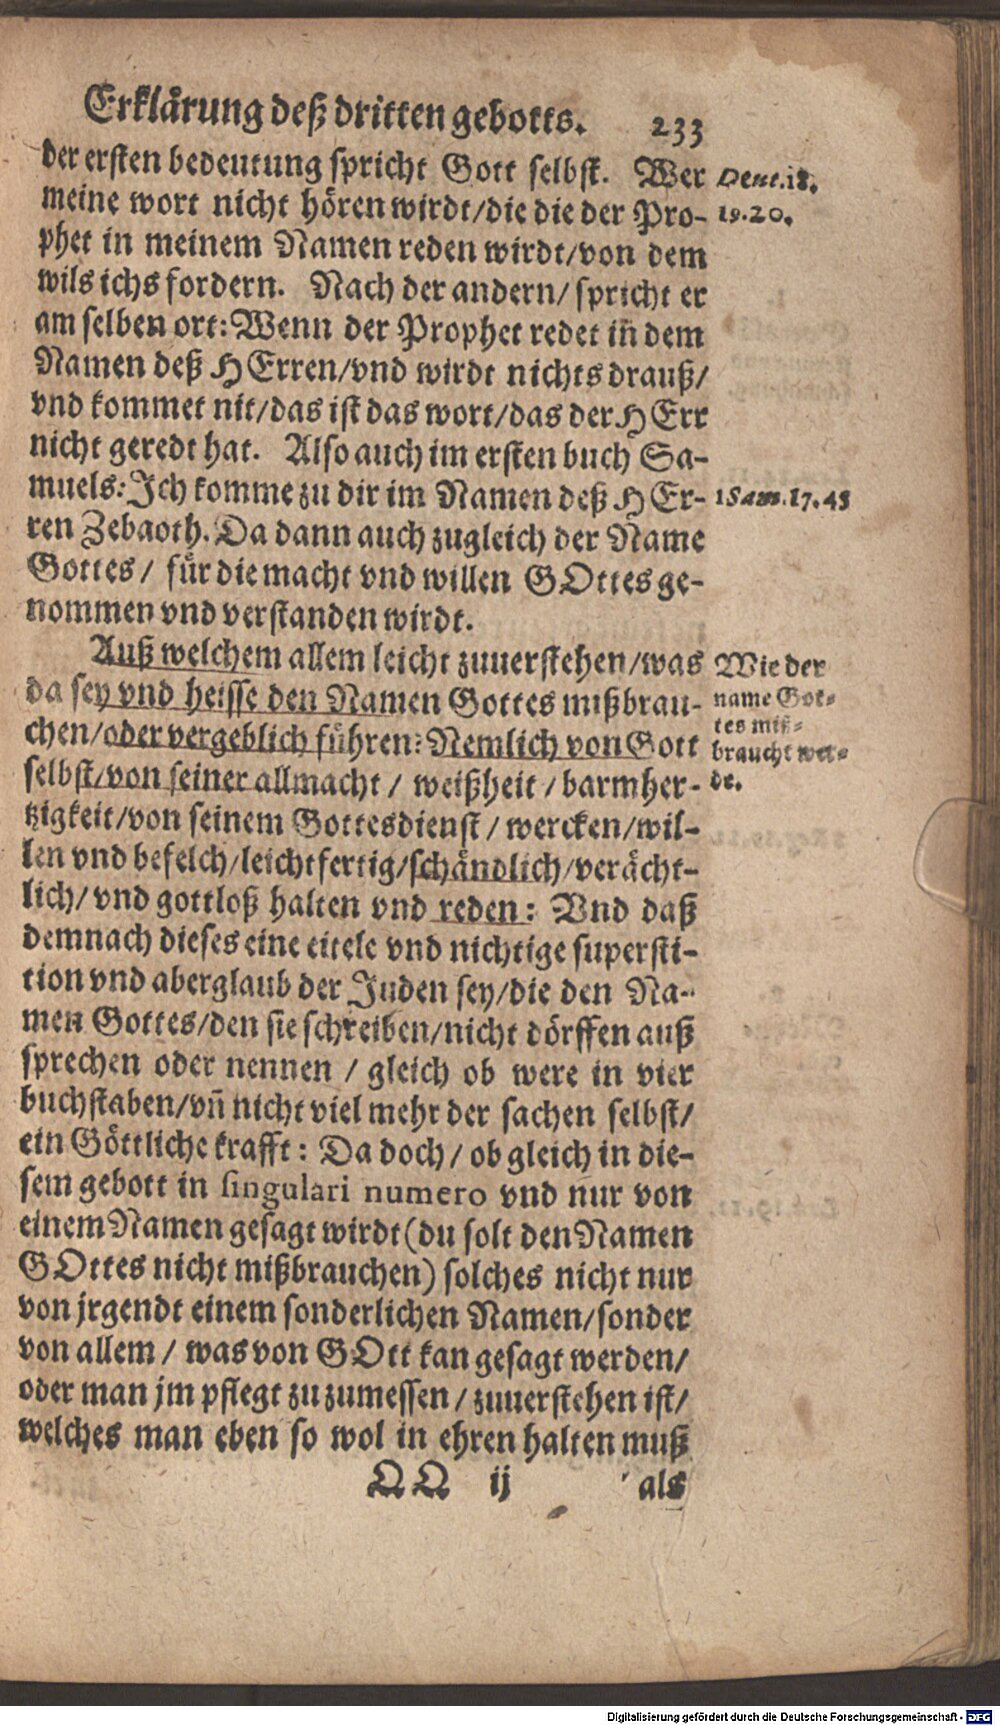 Erklärung deß dritten gebotts. 233
der ersten bedeutung spricht Gott selbst. Wer
meine wort nicht hören wirdt/die die der Pro-
phet in meinem Namen reden wirdt/von dem
wils ichs fordern. Nach der andern/ spricht er
am selben ort: Wenn der Prophet redet in̄ dem
Namen deß HErren/vnd wirdt nichts drauß/
vnd kommet nit/das ist das wort/das der HErr
nicht geredt hat. Also auch im ersten buch Sa-
muels: Ich komme zu dir im Namen deß HEr-
ren Zebaoth. Da dann auch zugleich der Name
Gottes/ für die macht vnd willen GOttes ge-
nommen vnd verstanden wirdt.
Auß welchem allem leicht zuuerstehen/was
da sey vnd heisse den Namen Gottes mißbrau-
chen/oder vergeblich führen: Nemlich von Gott
selbst/von seiner allmacht/ weißheit/ barmher-
tzigkeit/von seinem Gottesdienst/ wercken/wil-
len vnd befelch/leichtfertig/schändlich/verächt-
lich/ vnd gottloß halten vnd reden: Vnd daß
demnach dieses eine eitele vnd nichtige supersti-
tion vnd aberglaub der Juden sey/die den Na-
men Gottes/den sie schreiben/nicht dörffen auß
sprechen oder nennen/ gleich ob were in vier
buchstaben/vn̄ nicht viel mehr der sachen selbst/
ein Göttliche krafft: Da doch/ ob gleich in die-
sem gebott in singulari numero vnd nur von
einem Namen gesagt wirdt (du solt den Namen
GOttes nicht mißbrauchen) solches nicht nur
von jrgendt einem sonderlichen Namen/sonder
von allem/ was von GOtt kan gesagt werden/
oder man jm pflegt zu zumessen/ zuuerstehen ist/
welches man eben so wol in ehren halten muß
QQ ij als
Deut.18.
19.20.
1 Sam.17.45
Wie der
name Got-
tes miß-
braucht wer-
de.
Digitalisierung gefördert durch die Deutsche Forschungsgemeinschaft - DFG